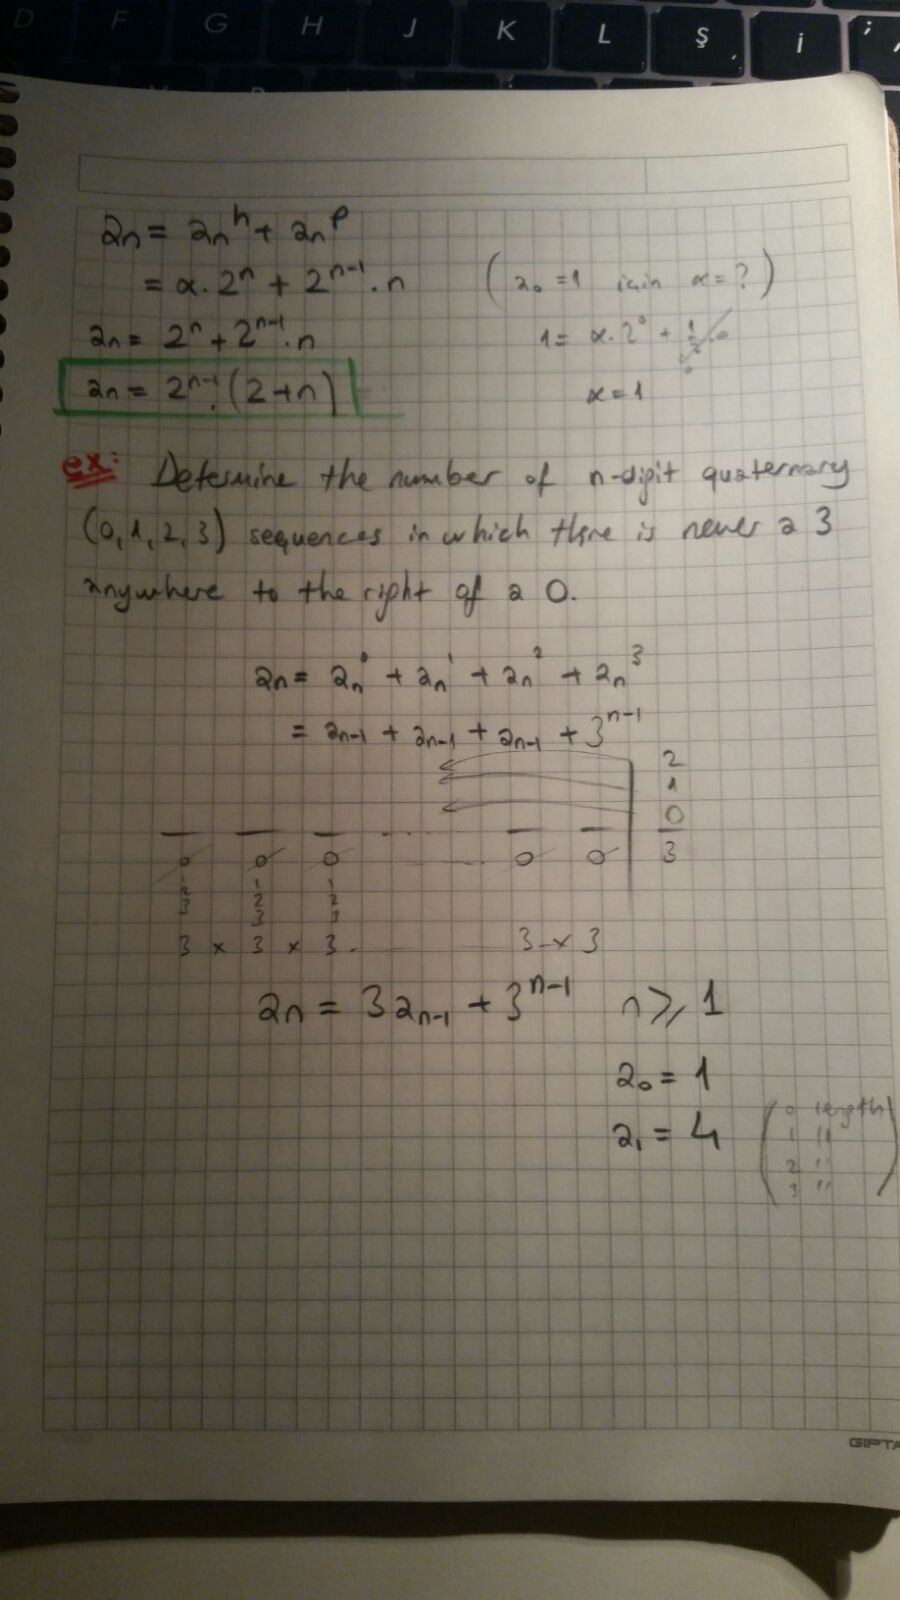 D F G H J K L Ş i
an = an^h + an^p
= α. 2^n + 2^(n-1) . n ( a0 = 1 için α = ? )
an = 2^n + 2^(n-1) . n 1 = α. 2^0 + 1/2 . 0
0
an = 2^(n-1) . (2+n) α = 1
ex: Determine the number of n-digit quaternary
(0,1,2,3) sequences in which there is never a 3
anywhere to the right of a 0.
an = an^0 + an^1 + an^2 + an^3
= an-1 + an-1 + an-1 + 3^(n-1)
2
1
0
0 0 0 0 0 3
1 1 1
2 2 2
3 3 3
3 x 3 x 3 . 3 x 3
an = 3an-1 + 3^(n-1) n ⩾ 1
a0 = 1
a1 = 4
( 0 length
1 "
2 "
3 " )
GIPTA